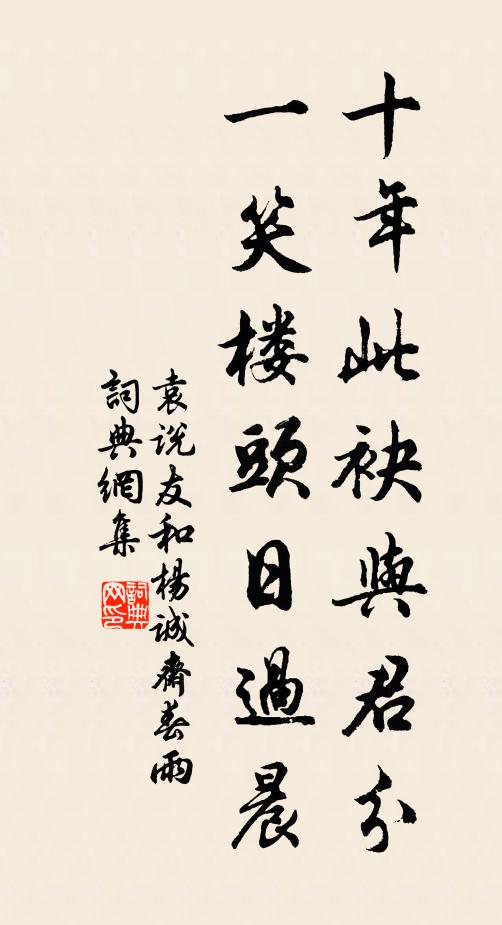 十年此袂與君分
一笑楼頭日過晨
袁说友和楊诚齋春雨
詞典網集
詞典网印